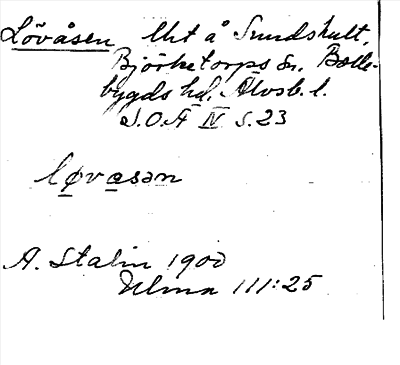 Lövåsen lht å Sundshult,
Björketorps sn. Bolle-
bygds hd, Älvsb. l.
S.O.Ä IV S.23
løvasən
A. Stalin 1900
Ulma 111:25